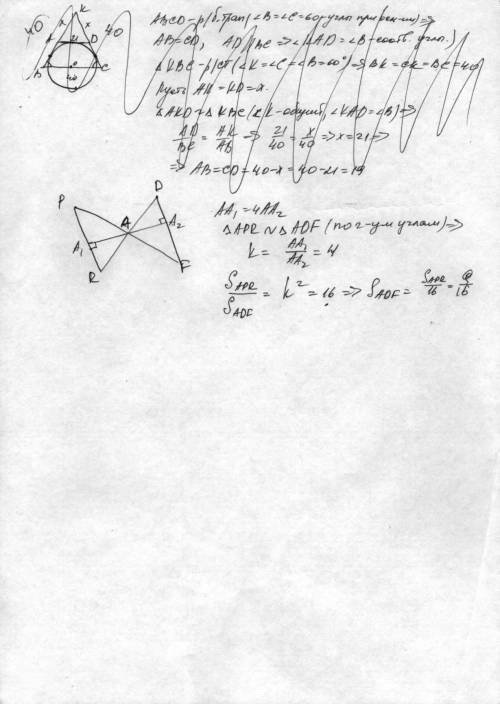 40
K
x
x
40
A
21
D
B
C
40
ABCD - р/б. трап (∠B=∠C=60°, углы при осн-ии) ⇒
AB=CD, AD∥BC ⇒ ∠KAD = ∠B - соотв. угл.)
ΔKBC - р/ст (∠K=∠C=∠B=60°) ⇒ BK=CK=BC=40
Пусть AK=KD=x.
ΔAKD ~ ΔKBC (∠K - общий, ∠KAD=∠B) ⇒
AD/BC = AK/AB ⇒ 21/40 = x/40 ⇒ x=21 ⇒
⇒ AB=CD=40-x=40-21=19
P
D
A
A₂
A₁
R
F
AA₁=4AA₂
ΔAPR ∾ ΔADF (по 2-ум углам) ⇒
k = AA₁/AA₂ = 4
S_APR/S_ADF = k² = 16 ⇒ S_ADF = S_APR/16 = Q/16